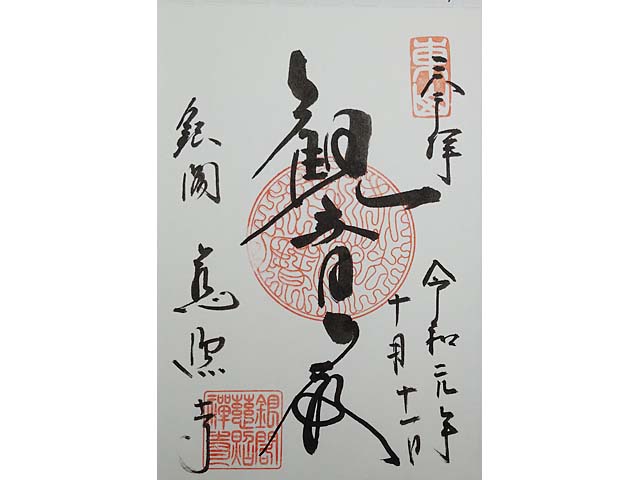 奉拝
令和元年
十月十一日
観音殿
銀閣 慈照寺
東山
銀閣
慈照
禅寺